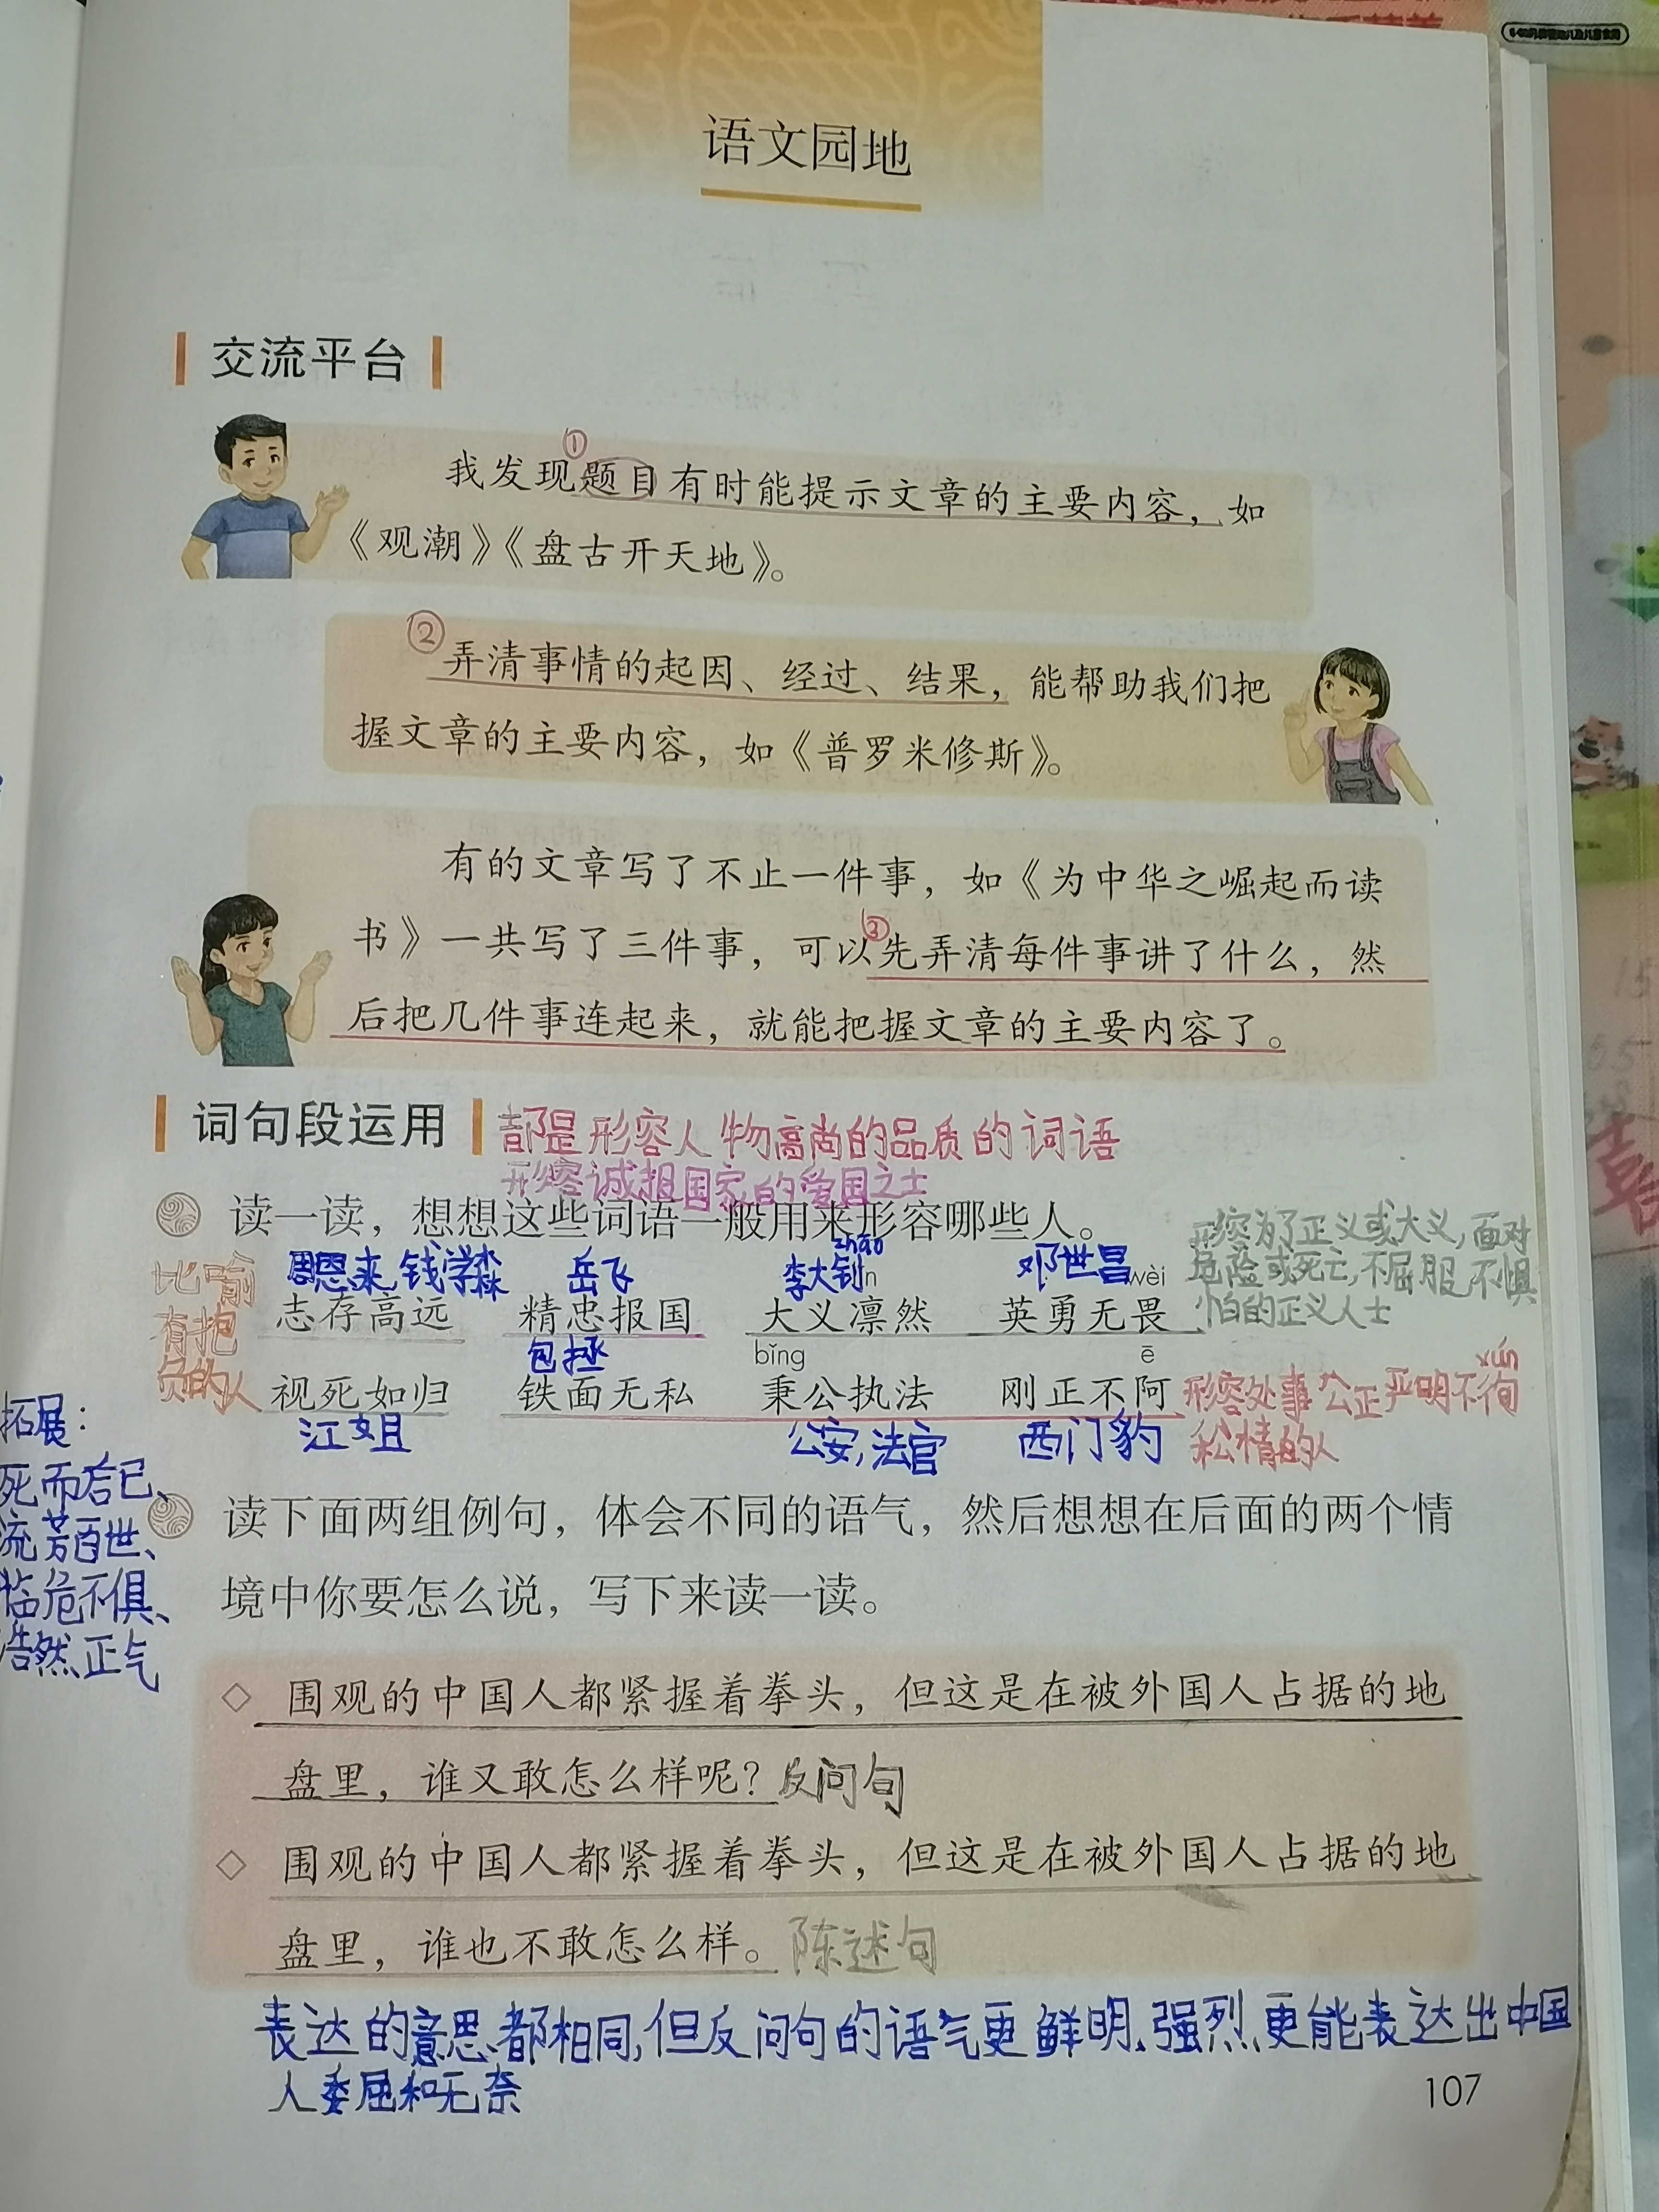 语文园地
交流平台
①
我发现题目有时能提示文章的主要内容，如
《观潮》《盘古开天地》。
②
弄清事情的起因、经过、结果，能帮助我们把
握文章的主要内容，如《普罗米修斯》。
有的文章写了不止一件事，如《为中华之崛起而读
③
书》一共写了三件事，可以先弄清每件事讲了什么，然
后把几件事连起来，就能把握文章的主要内容了。
词句段运用 都是形容人物高尚的品质的词语
形容诚祖国家的爱国之士
读一读，想想这些词语一般用来形容哪些人。
比喻
有抱
负的人
周恩来、钱学森 岳飞 李大钊 zhāo 邓世昌 wèi
志存高远 精忠报国 大义凛然 英勇无畏
形容为了正义或大义，面对
危险或死亡，不屈服，不惧
怕的正义人士
包拯 bǐng ē
视死如归 铁面无私 秉公执法 刚正不阿
形容处事公正严明不徇 xùn
私情的人
江姐 公安，法官 西门豹
拓展：
死而后已、
流芳百世、
临危不惧、
浩然正气
读下面两组例句，体会不同的语气，然后想想在后面的两个情
境中你要怎么说，写下来读一读。
◇ 围观的中国人都紧握着拳头，但这是在被外国人占据的地
盘里，谁又敢怎么样呢？反问句
◇ 围观的中国人都紧握着拳头，但这是在被外国人占据的地
盘里，谁也不敢怎么样。陈述句
表达的意思都相同，但反问句的语气更鲜明、强烈、更能表达出中国
人委屈和无奈
107